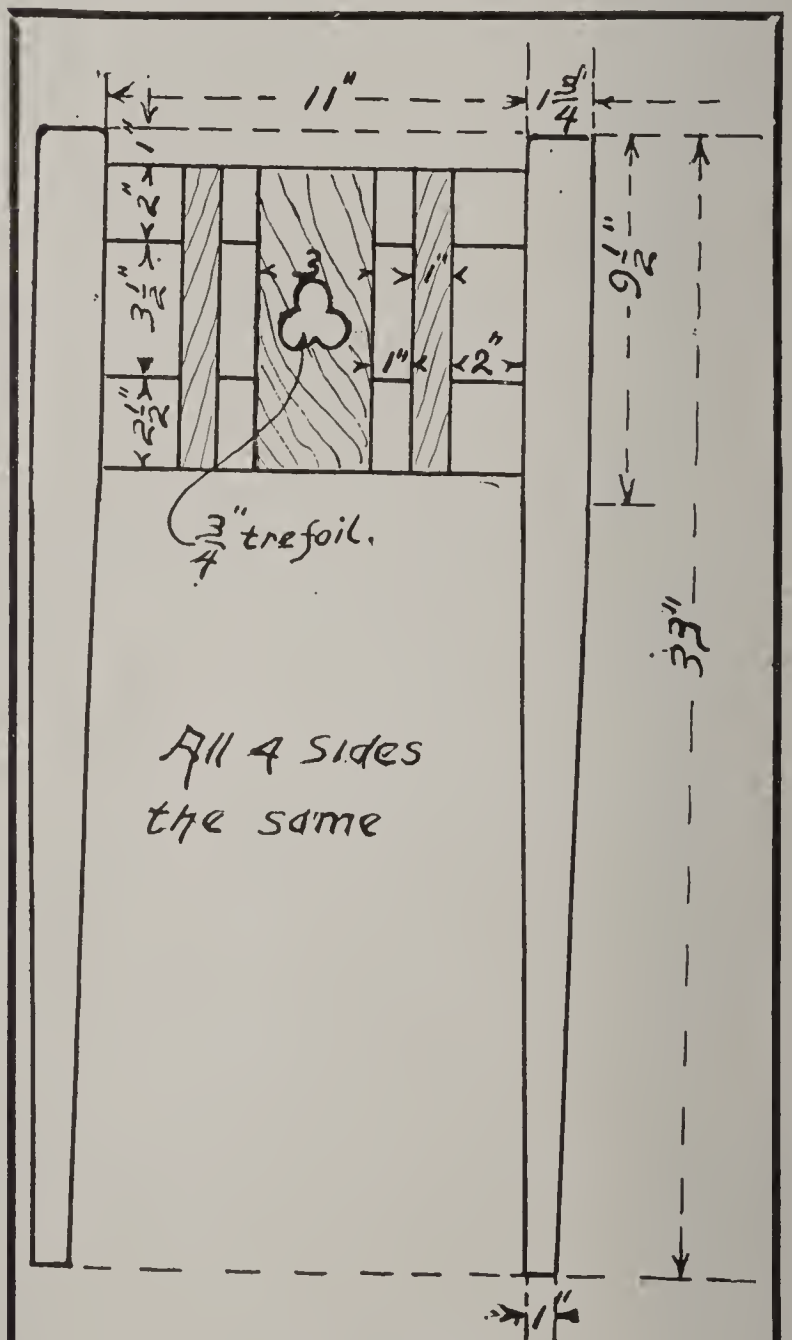 11"
1 3/4"
1"
2"
9 1/2"
3
1"
3 1/2"
1"
2"
2 1/2"
3/4" trefoil.
33"
All 4 Sides
the same
1"